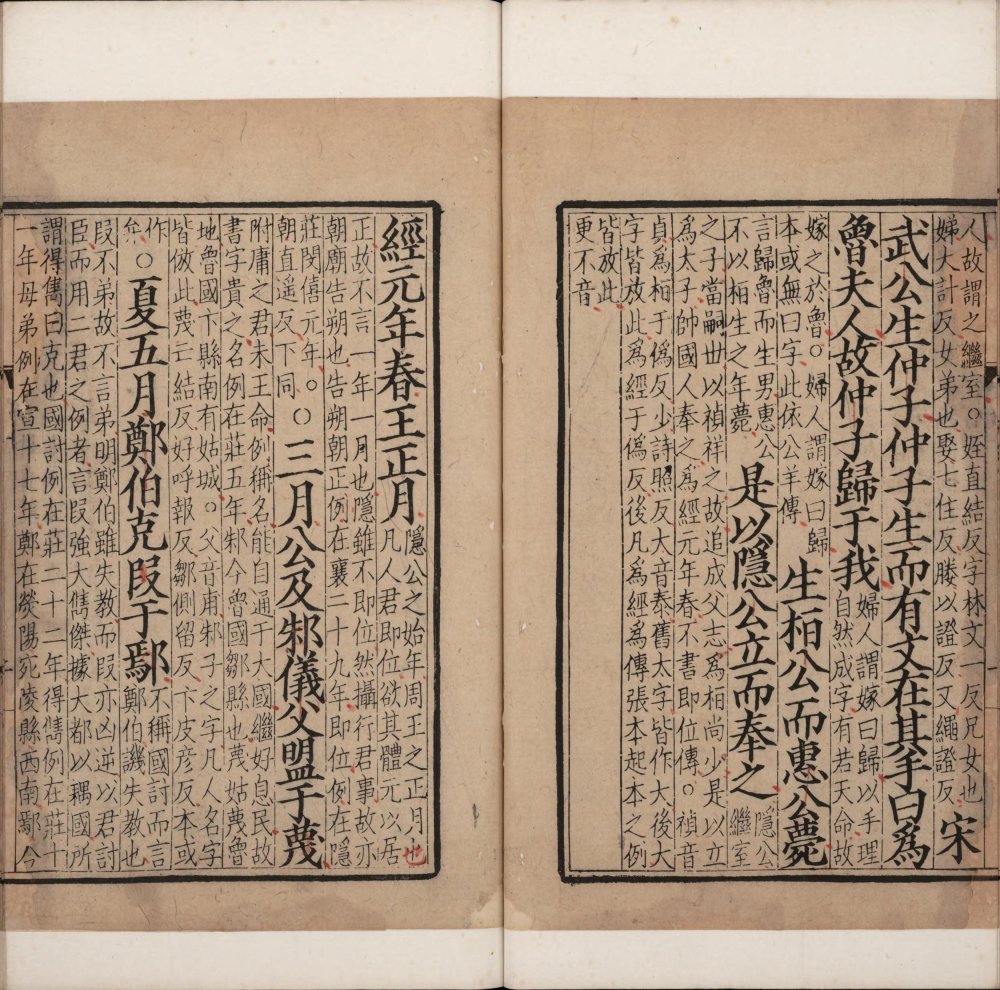 人故謂之繼室○姪直結反字林文一反兄女也
娣大計反女弟也娶七住反媵以證反又繩證反
宋
武公生仲子仲子生而有文在其手曰爲
魯夫人故仲子歸于我
婦人謂嫁曰歸以手理
自然成字有若天命故
嫁之於魯○婦人謂嫁曰歸
本或無曰字此依公羊傳
生桓公而惠公薨
言歸魯而生男惠公
不以桓生之年薨
是以隱公立而奉之
隱公
繼室
之子當嗣世以禎祥之故追成父志爲桓尚少是以立
爲太子帥國人奉之爲經元年春不書即位傳○禎音
貞爲桓于僞反少詩照反大音泰舊太字皆作大後大
字皆放此爲經于僞反後凡爲經爲傳張本起本之例
皆放此
更不音
經元年春王正月
隱公之始年周王之正月也
凡人君即位欲其體元以居
正故不言一年一月也隱雖不即位然攝行君事故亦
朝廟告朔也告朔朝正例在襄二十九年即位例在隱
莊閔僖元年○
朝直遥反下同
○三月公及邾儀父盟于蔑
附庸之君未王命例稱名能自通于大國繼好息民故
書字貴之名例在莊五年邾今魯國鄒縣也蔑姑蔑魯
地魯國卞縣南有姑城○父音甫邾子之字凡人名字
皆倣此蔑亡結反好呼報反鄒側留反卞皮彥反本或
作
弁
○夏五月鄭伯克段于鄢
不稱國討而言
鄭伯譏失教也
段不弟故不言弟明鄭伯雖失教而段亦凶逆以君討
臣而用二君之例者言段強大儁傑據大都以耦國所
謂得儁曰克也國討例在莊二十二年得儁例在莊十
一年母弟例在宣十七年鄭在滎陽宛陵縣西南鄢今